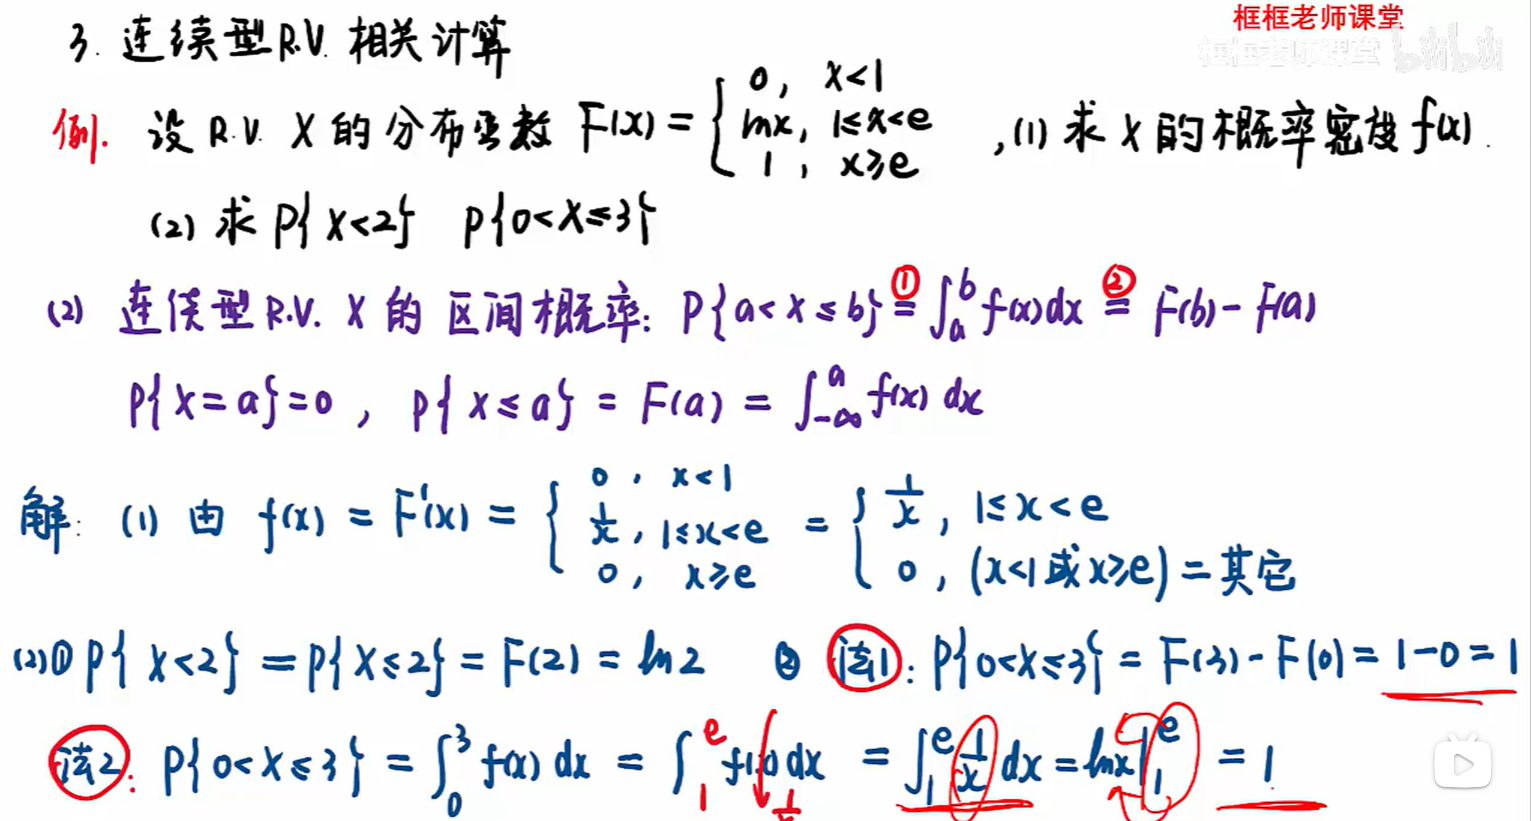 框框老师课堂
框框老师课堂 bilibili
3. 连续型R.V. 相关计算
例. 设 R.V. X 的分布函数 F(x) = { 0, x<1
lnx, 1≤x<e
1, x≥e
,(1) 求 X 的概率密度 f(x).
(2) 求 P{X<2} P{0<X≤3}
(2) 连续型R.V. X 的 区间概率: P{a<X≤b} ①= ∫_a^b f(x)dx ②= F(b)-F(a)
P{X=a}=0, P{X≤a} = F(a) = ∫_{-∞}^a f(x) dx
解: (1) 由 f(x) = F'(x) = { 0, x<1
1/x, 1≤x<e
0, x≥e
= { 1/x, 1≤x<e
0, (x<1或x≥e) = 其它
(2)① P{X<2} = P{X≤2} = F(2) = ln2 ② 法1: P{0<X≤3} = F(3)-F(0) = 1-0 = 1
法2: P{0<X≤3} = ∫_0^3 f(x) dx = ∫_1^e f(x) dx = ∫_1^e 1/x dx = lnx|_1^e = 1
1/x